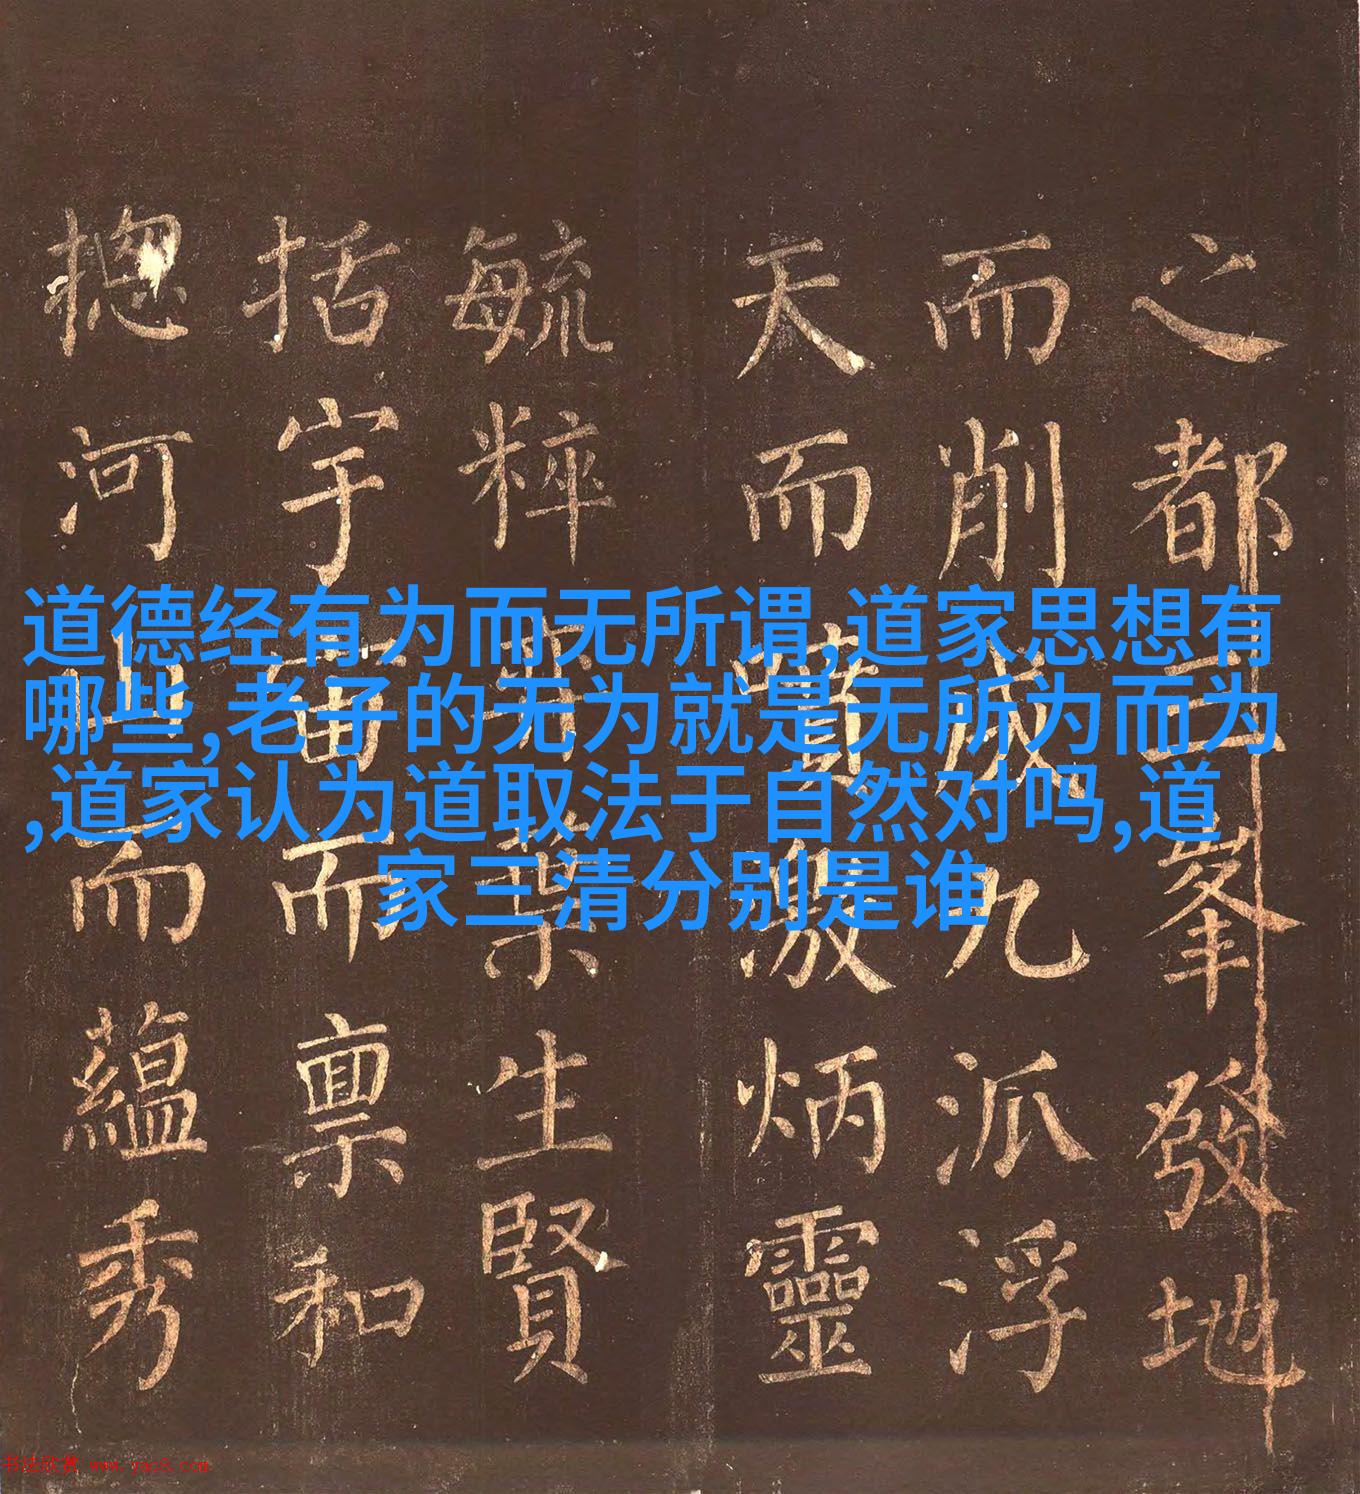 道德经有为而无所谓,道家思想有
哪些,老子的无为就是无所为而为
,道家认为道取法于自然对吗,道
家三清分别是谁
之都三峯發地
而削成九派浮
天而噴激炳靈
毓粹
生賢
括宇宙而禀和
揔河山而蘊秀
书法欣赏 www.yac8.com